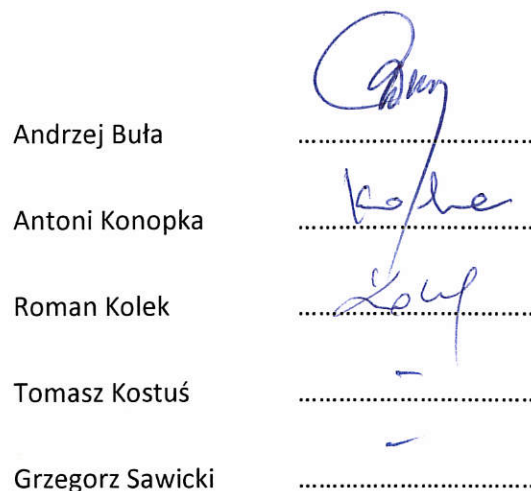 Andrzej Buła ..............................
Antoni Konopka ..............................
Roman Kolek ..............................
Tomasz Kostuś ..............................
Grzegorz Sawicki ..............................